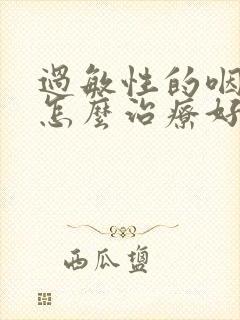 過敏性的咽
怎麼治療好
西瓜鹽